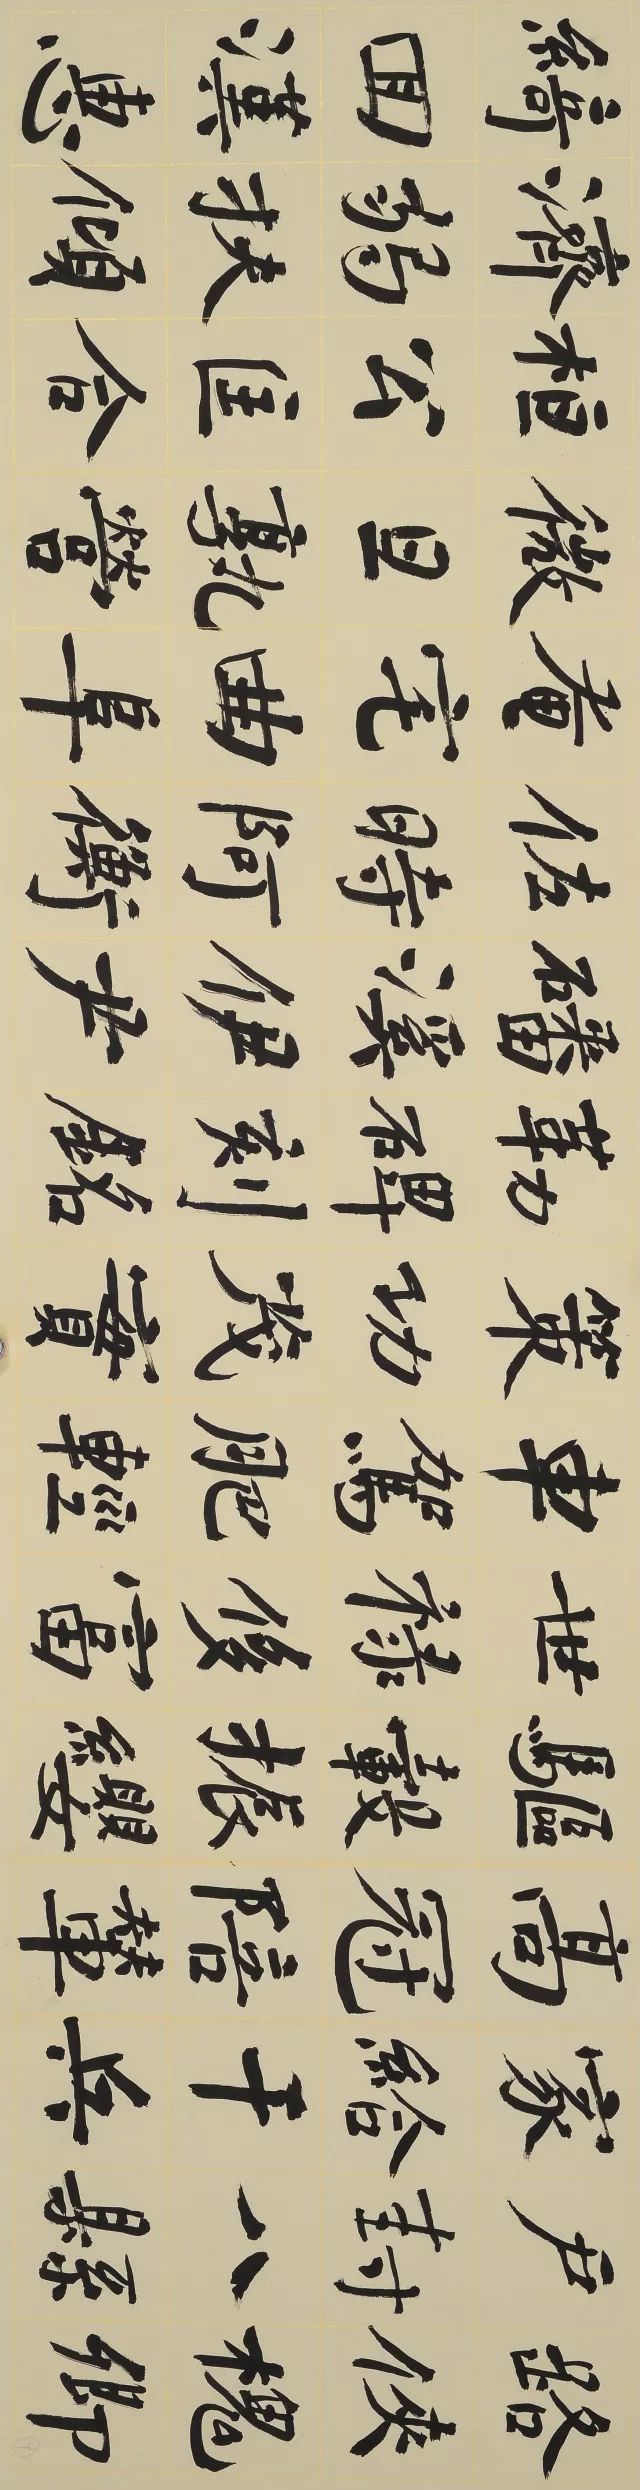 路俠槐卿
戶封八縣
家給千兵
高冠陪輦
驅轂振纓
世祿侈富
車駕肥輕
策功茂實
勒碑刻銘
磻溪伊尹
佐時阿衡
奄宅曲阜
微旦孰營
桓公匡合
濟弱扶傾
綺回漢惠